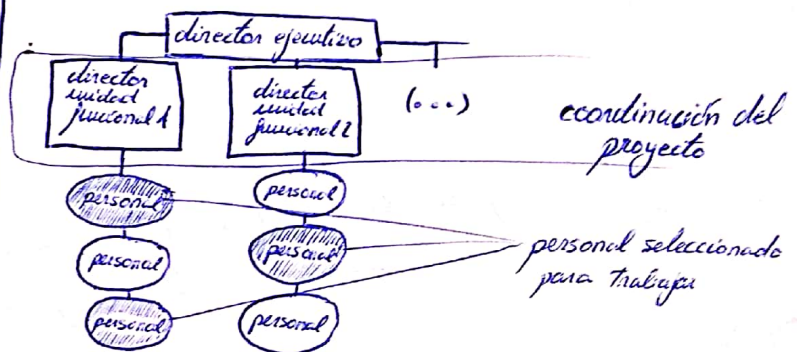 director ejecutivo
director
unidad
funcional 1
director
unidad
funcional 2
(...)
coordinación del
proyecto
personal
personal
personal
personal
personal
personal
personal seleccionado
para trabajar